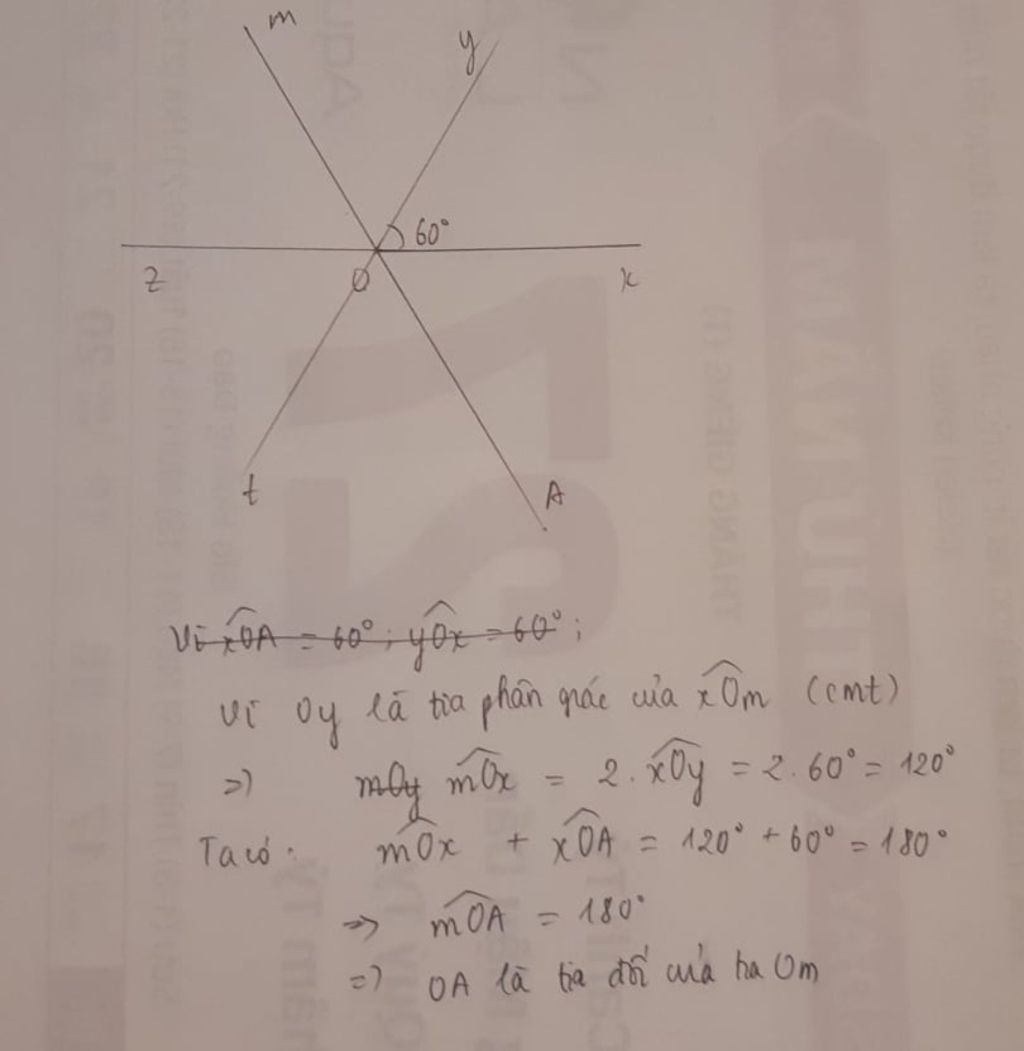 m
y
60°
z
O
x
t
A
Vì x̂OA = 60°; ŷOx = 60°;
Vì Oy là tia phân giác của x̂Om (cmt)
=> mOy m̂Ox = 2. x̂Oy = 2. 60° = 120°
Ta có: m̂Ox + x̂OA = 120° + 60° = 180°
=> m̂OA = 180°
=> OA là tia đối của tia Om